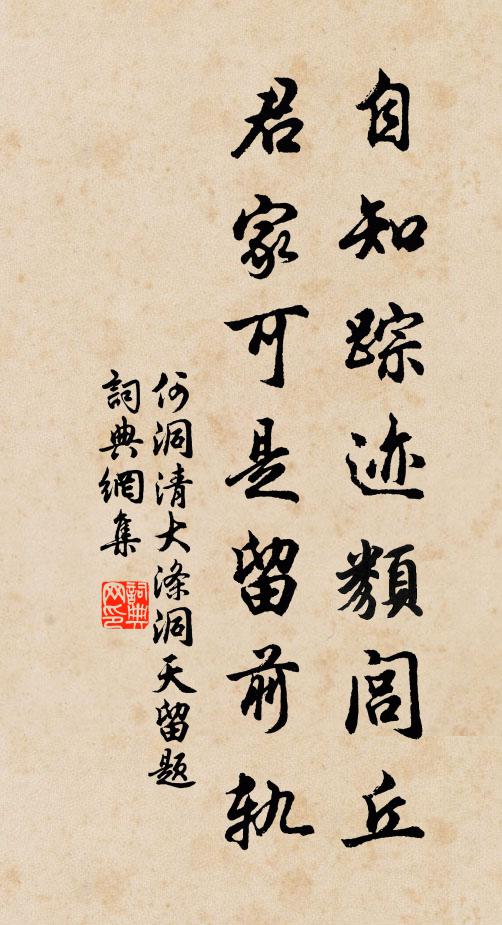 自知踪迹類閭丘
君家可是留前軌
何洞清大涤洞天留题
詞典網集
詞典
网印